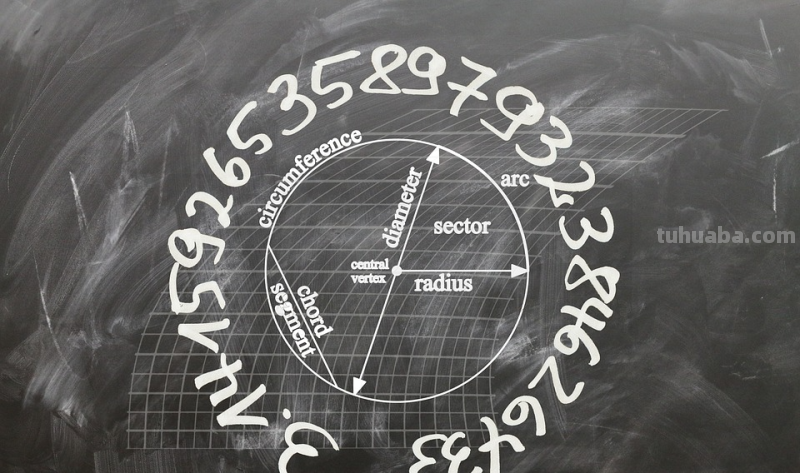 3.1415926535897932384626433
circumference
arc
diameter
sector
central
vertex
radius
chord
segment
tuhuaba.com